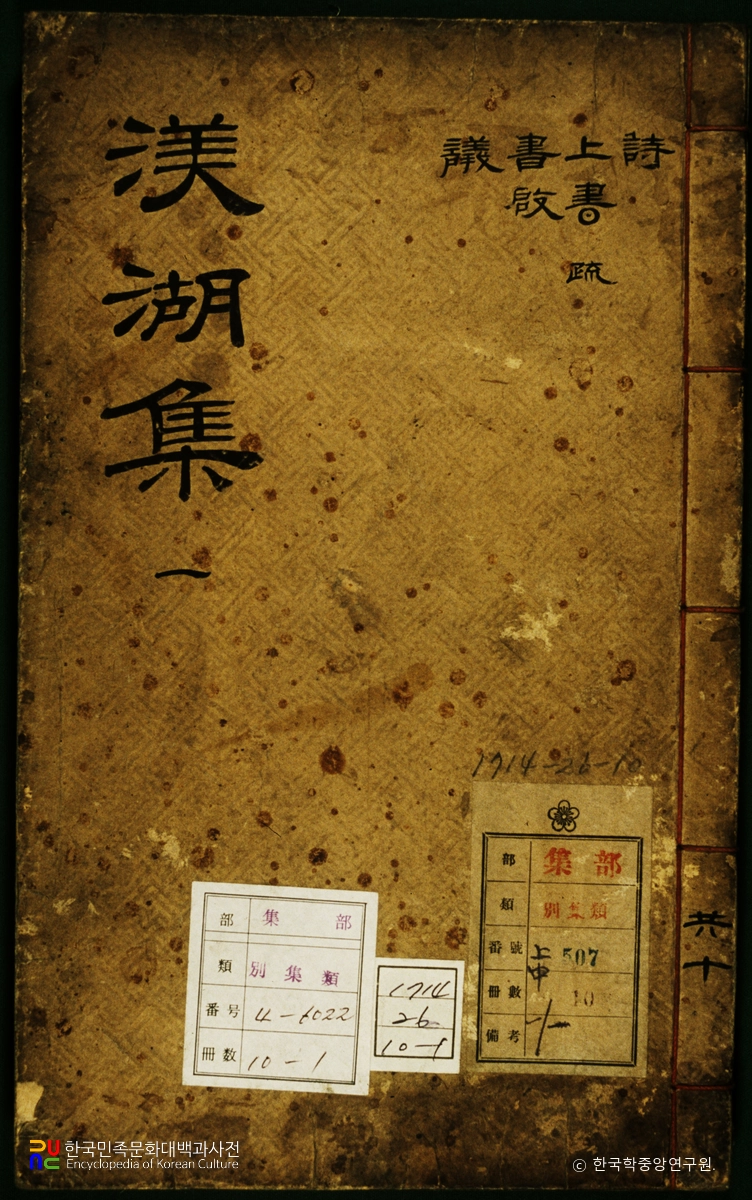 渼湖集 一
詩
上書 疏
書啟
議
共十
1714-26-10
部 集部
類 別集類
番號 上中 507
冊數 10
備考
部 集部
類 別集類
番号 4-6022
冊数 10-1
1714
26
10-1
한국민족문화대백과사전
Encyclopedia of Korean Culture
ⓒ 한국학중앙연구원.